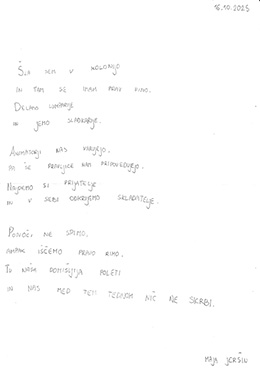 16.10.2025
Šla sem v kolonijo
in tam se imam prav fino.
Delamo lumparije
in jemo sladkarije.
Animatorji nas varjejo,
in še pravljice nam pripovedujejo.
Najdemo si prijatelje
in v sebi odkrijamo skladatelje.
Ponoči ne spimo,
ampak iščemo pravo rimo.
Tu naša domišljija poleti
in nas med tem tednom nič ne skrbi.
Maja Jeršin